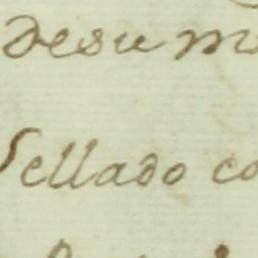 desu m
Sellado co